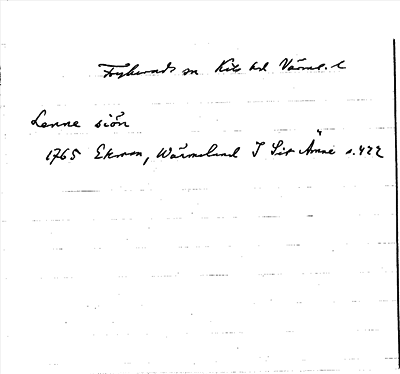 Fryksends sn Kils hd Värml. l
Lenne siön
1765 Ekman, Wärmeland I Sir Ämne s. 422